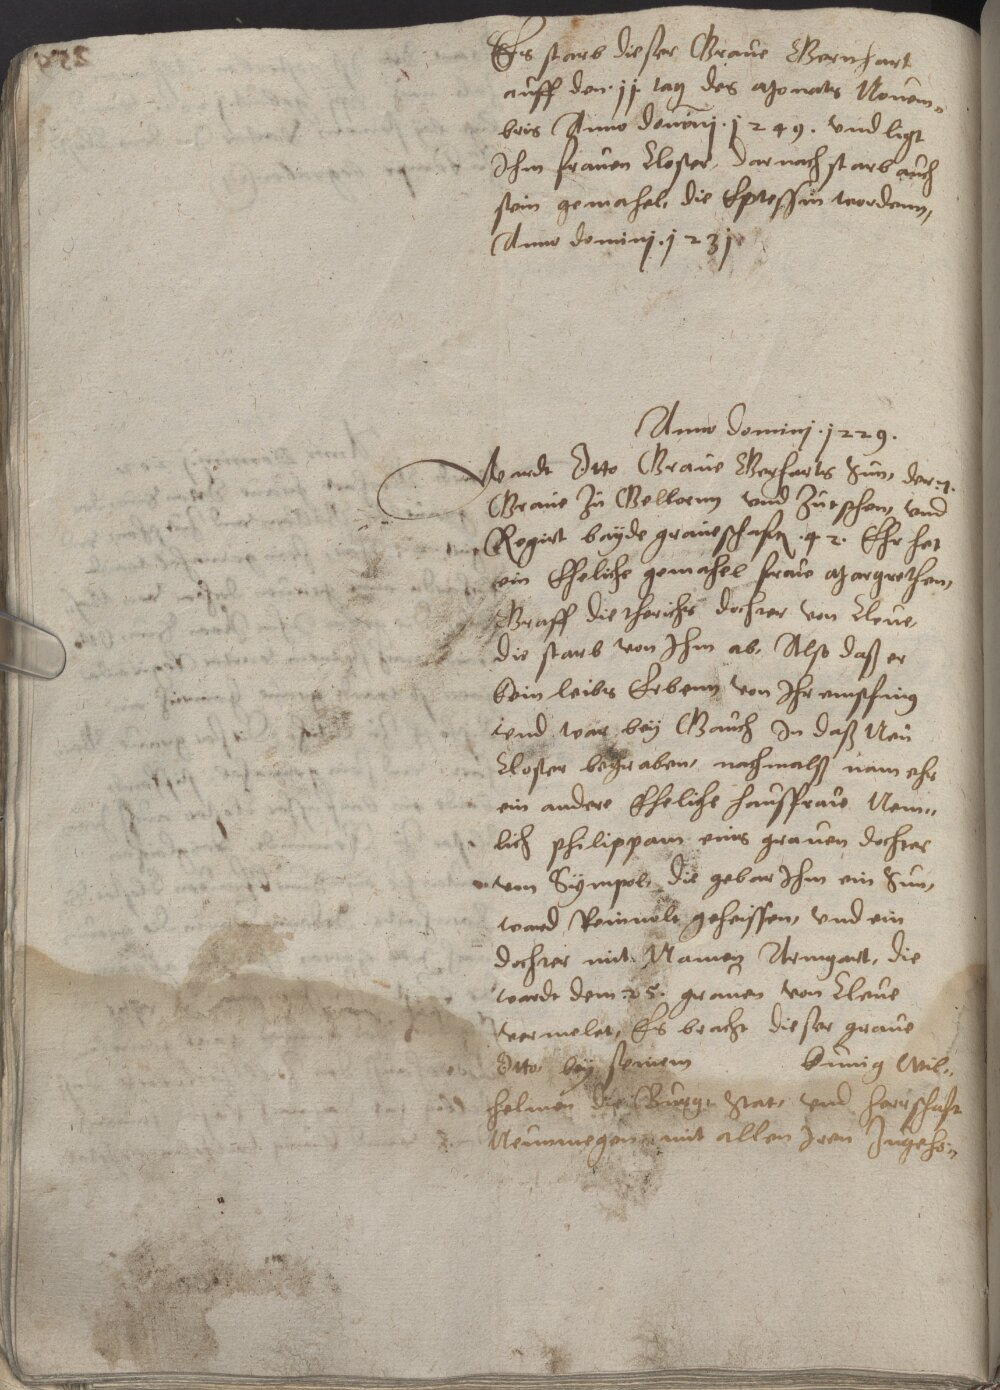 Es starb dieser Graue Gernhart
auff den .11. tag des Monats Nouem„
bris Anno domini .1249. vnd ligt
Ihm frauen Closter, darnach starb auch
sein gemahel, die Eptessin wordenn,
Anno dominj .1231.
Anno dominj .1229.
Wardt Otto Graue Gerharts Sun, der 7.
Graue Zu Gellernn vnd Zutphen, vnd
Regirt bayde graueschafft .42. Ehr het
ein Eheliche gemahel fraue Margrethen,
Graff dietherichs dochter von Cleue,
die starb von Ihm ab, Also daß er
kein leibs Erbenn von Ihr empfing
vnd war bey Gauch In daß Neu
Closter begraben, nachmalß nam ehr
ein andere Eheliche hausfraue Nem„
lich philippam eins grauen dochter
von Sympol, die gebar Ihm ein Sun,
ward Reinnolt geheissen, vnd ein
dochter mit Namen Armgart, die
wardt dem 25. grauen von Cleue
vermelet, Es bracht dieser graue
Otto, bey seinem kunig Wil„
helmen die Burg, Stat, vnd herrschafft
Neummegen mit allen Iren Zugehö„